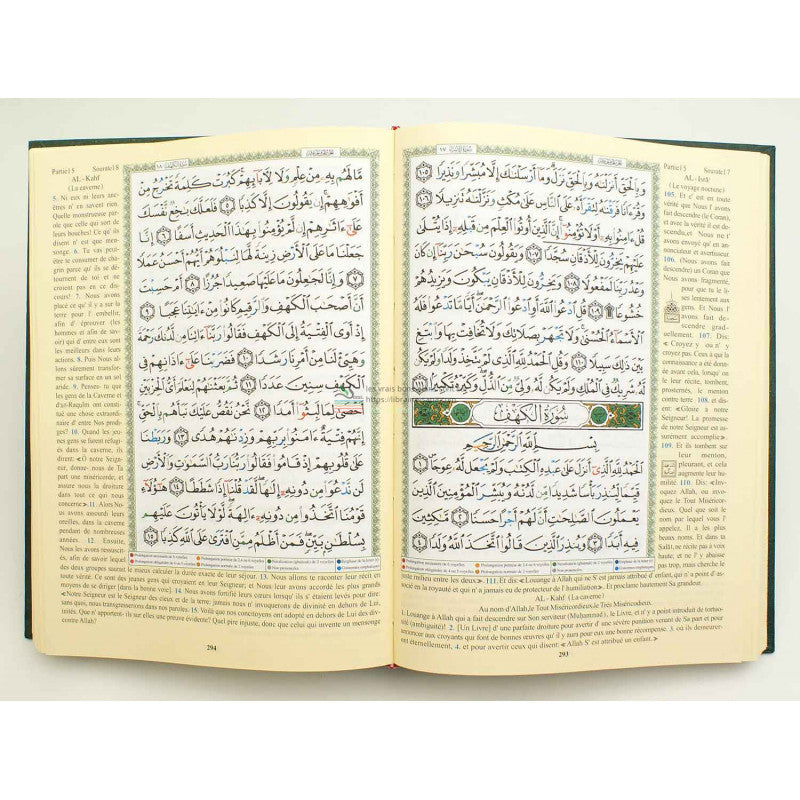 سُورَةُ الإِسْرَاءِ ١٧
وَبِالْحَقِّ أَنزَلْنَٰهُ وَبِالْحَقِّ نَزَلَ وَمَا أَرْسَلْنَٰكَ إِلَّا مُبَشِّرًا وَنَذِيرًا ١٠٥
وَقُرْءَانًا فَرَقْنَٰهُ لِتَقْرَأَهُ عَلَى النَّاسِ عَلَىٰ مُكْثٍ وَنَزَّلْنَٰهُ تَنزِيلًا ١٠٦
قُلْ ءَامِنُوا بِهِ أَوْ لَا تُؤْمِنُوا إِنَّ الَّذِينَ أُوتُوا الْعِلْمَ مِن قَبْلِهِ إِذَا يُتْلَىٰ
عَلَيْهِمْ يَخِرُّونَ لِلْأَذْقَانِ سُجَّدًا ١٠٧ وَيَقُولُونَ سُبْحَٰنَ رَبِّنَا إِن كَانَ
وَعْدُ رَبِّنَا لَمَفْعُولًا ١٠٨ وَيَخِرُّونَ لِلْأَذْقَانِ يَبْكُونَ وَيَزِيدُهُمْ
خُشُوعًا ١٠٩ قُلِ ادْعُوا اللَّهَ أَوِ ادْعُوا الرَّحْمَٰنَ أَيًّا مَّا تَدْعُوا فَلَهُ
الْأَسْمَاءُ الْحُسْنَىٰ وَلَا تَجْهَرْ بِصَلَاتِكَ وَلَا تُخَافِتْ بِهَا وَابْتَغِ
بَيْنَ ذَٰلِكَ سَبِيلًا ١١٠ وَقُلِ الْحَمْدُ لِلَّهِ الَّذِي لَمْ يَتَّخِذْ وَلَدًا وَلَمْ يَكُن
لَّهُ شَرِيكٌ فِي الْمُلْكِ وَلَمْ يَكُن لَّهُ وَلِيٌّ مِّنَ الذُّلِّ وَكَبِّرْهُ تَكْبِيرًا ١١١
سُورَةُ الْكَهْفِ
بِسْمِ اللَّهِ الرَّحْمَٰنِ الرَّحِيمِ
الْحَمْدُ لِلَّهِ الَّذِي أَنزَلَ عَلَىٰ عَبْدِهِ الْكِتَٰبَ وَلَمْ يَجْعَل لَّهُ عِوَجًا ١
قَيِّمًا لِّيُنذِرَ بَأْسًا شَدِيدًا مِّن لَّدُنْهُ وَيُبَشِّرَ الْمُؤْمِنِينَ الَّذِينَ
يَعْمَلُونَ الصَّٰلِحَٰتِ أَنَّ لَهُمْ أَجْرًا حَسَنًا ٢ مَّٰكِثِينَ
فِيهِ أَبَدًا ٣ وَيُنذِرَ الَّذِينَ قَالُوا اتَّخَذَ اللَّهُ وَلَدًا ٤
Partie15 Sourate17
AL - Isrâ'
(Le voyage nocturne)
105. Et c'est en toute
vérité que Nous l'avons
fait descendre (le Coran),
et avec la vérité il est
descendu, et Nous ne t'
avons envoyé qu'en
annonciateur et avertisseur.
106. (Nous avons fait
descendre) un Coran que
Nous avons fragmenté,
pour que tu le li-
ses lentement aux
gens. Et Nous l'
avons fait des-
cendre grad-
uellement. 107. Dis:
« Croyez y ou n' y
croyez pas. Ceux à qui la
connaissance a été donnée
avant cela, lorsqu' on le
leur récite, tombent,
prosternés, le menton
contre terre 108. et disent
: «Gloire à notre
Seigneur! La promesse
de notre Seigneur est
assurément accomplie».
109. Et ils tombent sur
leur menton,
pleurant, et cela
augmente leur hu-
milité. 110. Dis: «Inv-
oquez Allah, ou invoquez
le Tout Miséricor-
dieux. Quel que soit le
nom par lequel vous l'
appelez, Il a les plus
beaux noms. Et dans ta
Salât, ne récite pas à
voix haute; et ne l'y abaisse
pas trop, mais cherche le
juste milieu entre les deux ». 111. Et dis: « Louange à Allah qui ne S' est jamais attribué d' enfant, qui n' a point d' associé
en la royauté et qui n' a jamais eu de protecteur de l' humiliation». Et proclame hautement Sa grandeur.
AL - Kahf (La caverne)
Au nom d'Allah,le Tout Miséricordieux,le Très Miséricordieux.
1. Louange à Allah qui a fait descendre sur Son serviteur (Muhammad), le Livre, et n' y a point introduit de tortuo-
sité (ambiguïté)! 2. [Un Livre] d' une parfaite droiture pour avertir d' une sévère punition venant de Sa part et pour
annoncer aux croyants qui font de bonnes œuvres qu' il y aura pour eux une bonne récompense. 3. où ils demeurer-
ont éternellement, 4. et pour avertir ceux qui disent: « Allah S' est attribué un enfant.»
293
سُورَةُ الْكَهْفِ ١٨
مَّا لَهُم بِهِ مِنْ عِلْمٍ وَلَا لِآبَائِهِمْ كَبُرَتْ كَلِمَةً تَخْرُجُ مِنْ
أَفْوَٰهِهِمْ إِن يَقُولُونَ إِلَّا كَذِبًا ٥ فَلَعَلَّكَ بَٰخِعٌ نَّفْسَكَ
عَلَىٰ ءَاثَٰرِهِمْ إِن لَّمْ يُؤْمِنُوا بِهَٰذَا الْحَدِيثِ أَسَفًا ٦ إِنَّا
جَعَلْنَا مَا عَلَى الْأَرْضِ زِينَةً لَّهَا لِنَبْلُوَهُمْ أَيُّهُمْ أَحْسَنُ عَمَلًا
٧ وَإِنَّا لَجَٰعِلُونَ مَا عَلَيْهَا صَعِيدًا جُرُزًا ٨ أَمْ حَسِبْتَ
أَنَّ أَصْحَٰبَ الْكَهْفِ وَالرَّقِيمِ كَانُوا مِنْ ءَايَٰتِنَا عَجَبًا ٩
إِذْ أَوَى الْفِتْيَةُ إِلَى الْكَهْفِ فَقَالُوا رَبَّنَا ءَاتِنَا مِن لَّدُنكَ رَحْمَةً
وَهَيِّئْ لَنَا مِنْ أَمْرِنَا رَشَدًا ١٠ فَضَرَبْنَا عَلَىٰ ءَاذَانِهِمْ فِي
الْكَهْفِ سِنِينَ عَدَدًا ١١ ثُمَّ بَعَثْنَٰهُمْ لِنَعْلَمَ أَيُّ الْحِزْبَيْنِ
أَحْصَىٰ لِمَا لَبِثُوا أَمَدًا ١٢ نَّحْنُ نَقُصُّ عَلَيْكَ نَبَأَهُم بِالْحَقِّ
إِنَّهُمْ فِتْيَةٌ ءَامَنُوا بِرَبِّهِمْ وَزِدْنَٰهُمْ هُدًى ١٣ وَرَبَطْنَا
عَلَىٰ قُلُوبِهِمْ إِذْ قَامُوا فَقَالُوا رَبُّنَا رَبُّ السَّمَٰوَٰتِ وَالْأَرْضِ
لَن نَّدْعُوَا مِن دُونِهِ إِلَٰهًا لَّقَدْ قُلْنَا إِذًا شَطَطًا ١٤ هَٰؤُلَاءِ
قَوْمُنَا اتَّخَذُوا مِن دُونِهِ ءَالِهَةً لَّوْلَا يَأْتُونَ عَلَيْهِم
بِسُلْطَٰنٍ بَيِّنٍ فَمَنْ أَظْلَمُ مِمَّنِ افْتَرَىٰ عَلَى اللَّهِ كَذِبًا ١٥
Partie15 Sourate18
AL - Kahf
(La caverne)
5. Ni eux ni leurs anc-
êtres n' en savent rien.
Quelle monstrueuse par-
ole que celle qui sort de
leurs bouches! Ce qu' ils
disent n' est que mens-
onge. 6. Tu vas peut-être
te consumer de chag-
rin parce qu' ils se dé-
tournent de toi et ne
croient pas en ce dis-
cours! 7. Nous avons
placé ce qu' il y a sur la
terre pour l' embellir,
afin d' éprouver (les
hommes et afin de savoir)
qui d' entre eux sont
les meilleurs dans leurs
actions. 8. Puis Nous al-
lons sûrement transfor-
mer sa surface en un sol
aride. 9. Penses- tu que
les gens de la Caverne et
d'ar-Raquîm ont cons-
titué une chose extraordi-
naire d' entre Nos prodi-
ges? 10. Quand les jeun-
es gens se furent réfugiés
dans la caverne, ils diren-
t: «Ô notre Seigneur,
donne- nous de Ta part
une miséricorde, et assure
nous la droiture dans
tout ce qui nous
concerne».11. Alors Nous
avons assourdi leurs
oreilles, dans la caverne
pendant de nombreuses
années. 12. Ensuite,
Nous les avons ressuscit-
és, afin de savoir lequel
des deux groupes saurait le mieux calculer la durée exacte de leur séjour. 13. Nous allons te raconter leur récit en
toute vérité. Ce sont des jeunes gens qui croyaient en leur Seigneur; et Nous leurs avons accordé les plus grands
moyens de se diriger [dans la bonne voie]. 14. Nous avons fortifié leurs cœurs lorsqu' ils s' étaient levés pour dire:
«Notre Seigneur est le Seigneur des cieux et de la terre: jamais nous n' invoquerons de divinité en dehors de Lui,
sans quoi, nous transgresserions dans nos paroles. 15. Voilà que nos concitoyens ont adopté en dehors de Lui des divinités.
Que n' apportent- ils sur elles une preuve évidente? Quel pire injuste, donc que celui qui invente un mensonge
contre Allah?
294